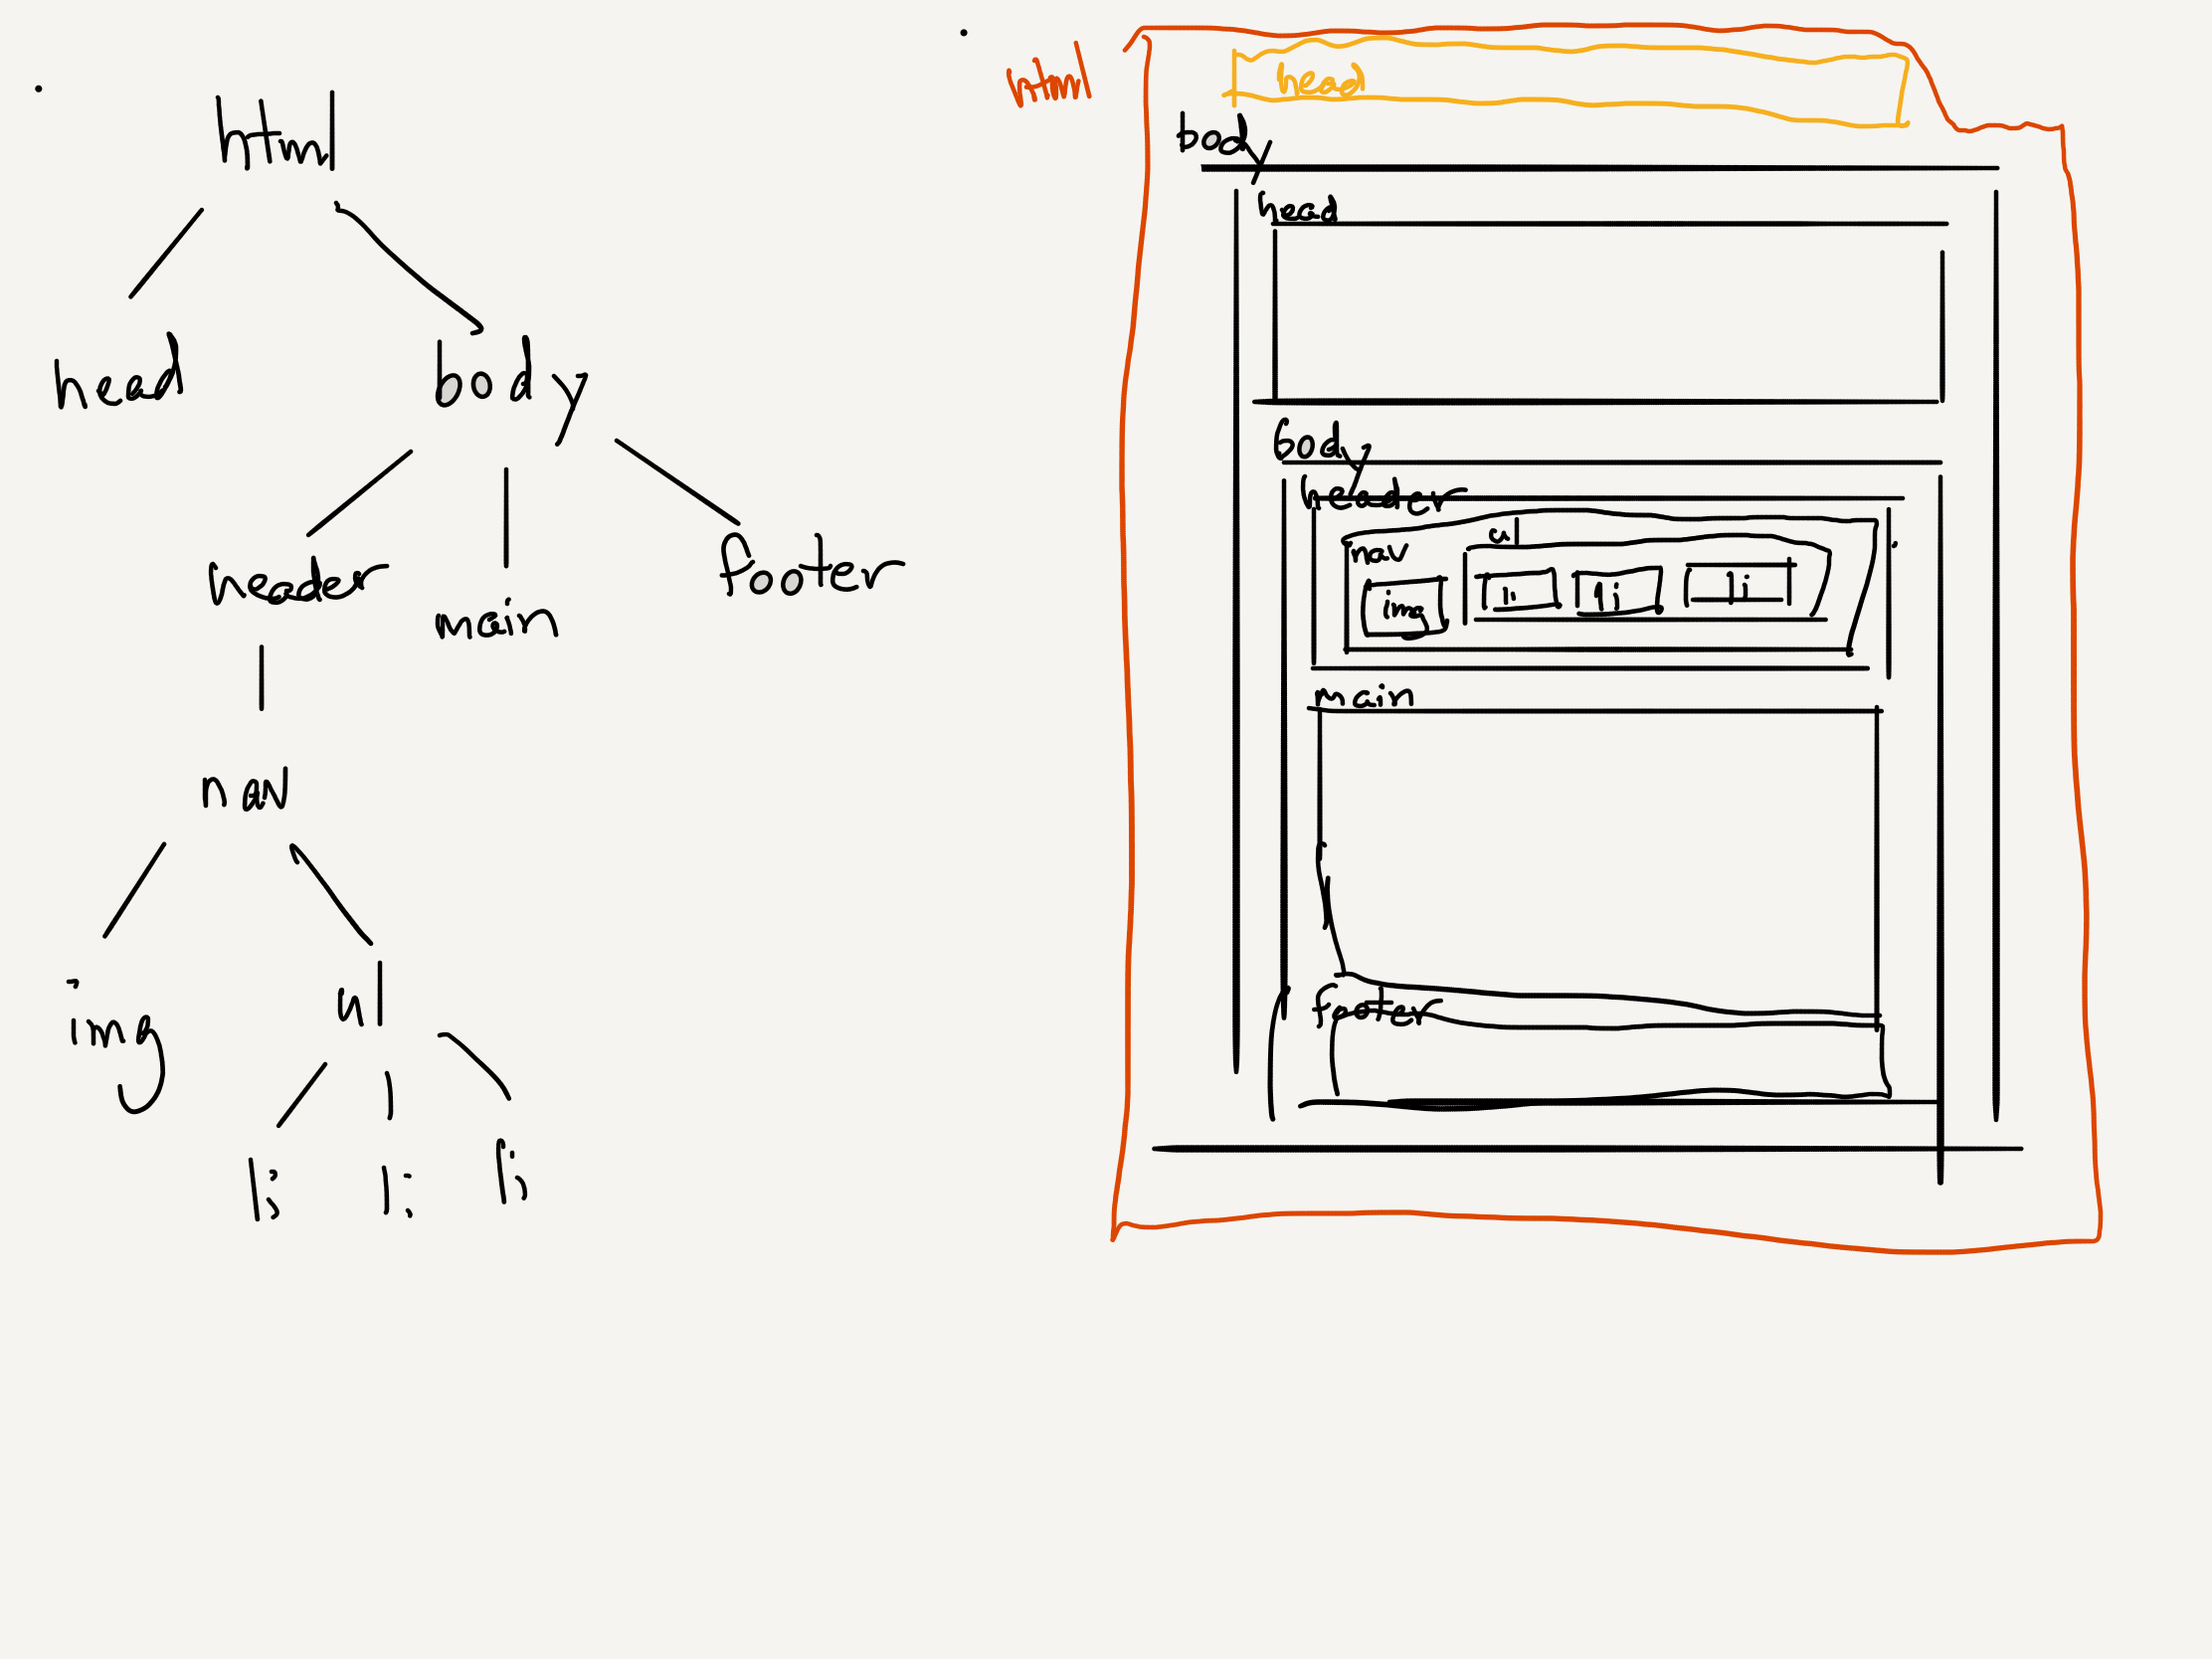 html
head body
header main footer
nav
img ul
li li li
html
head
body
head
body
header
nav ul
img li li li
main
footer